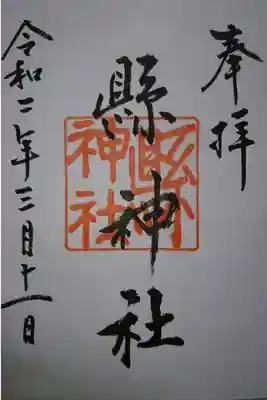 奉拝
縣神社
縣神社
令和二年三月十一日